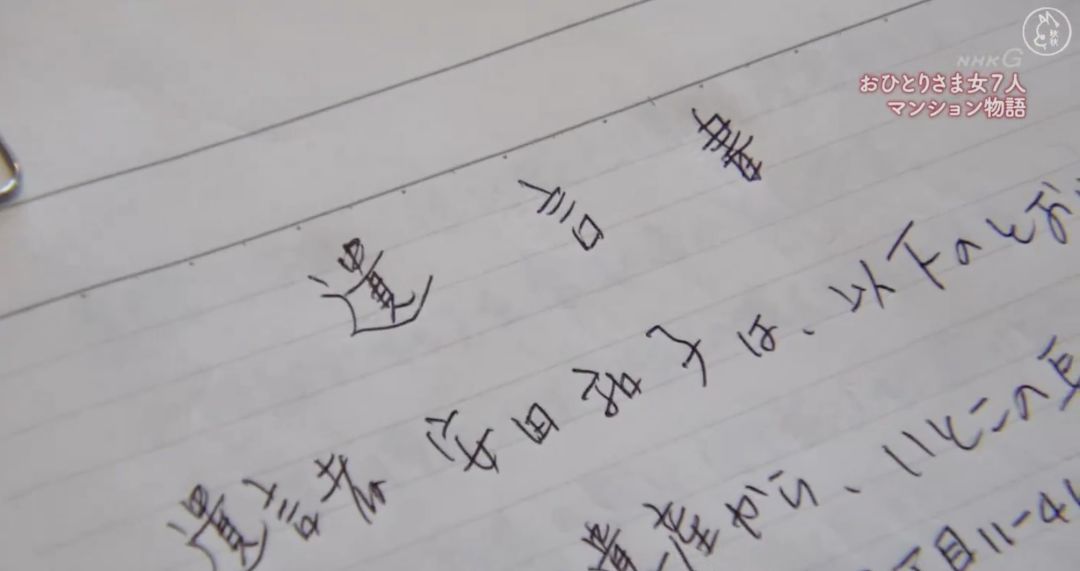 秋秋
NHK G
おひとりさま女7人
マンション物語
遺言書
遺言者 安田和子は、以下のとお
遺産から、いとこの
丁目11-41